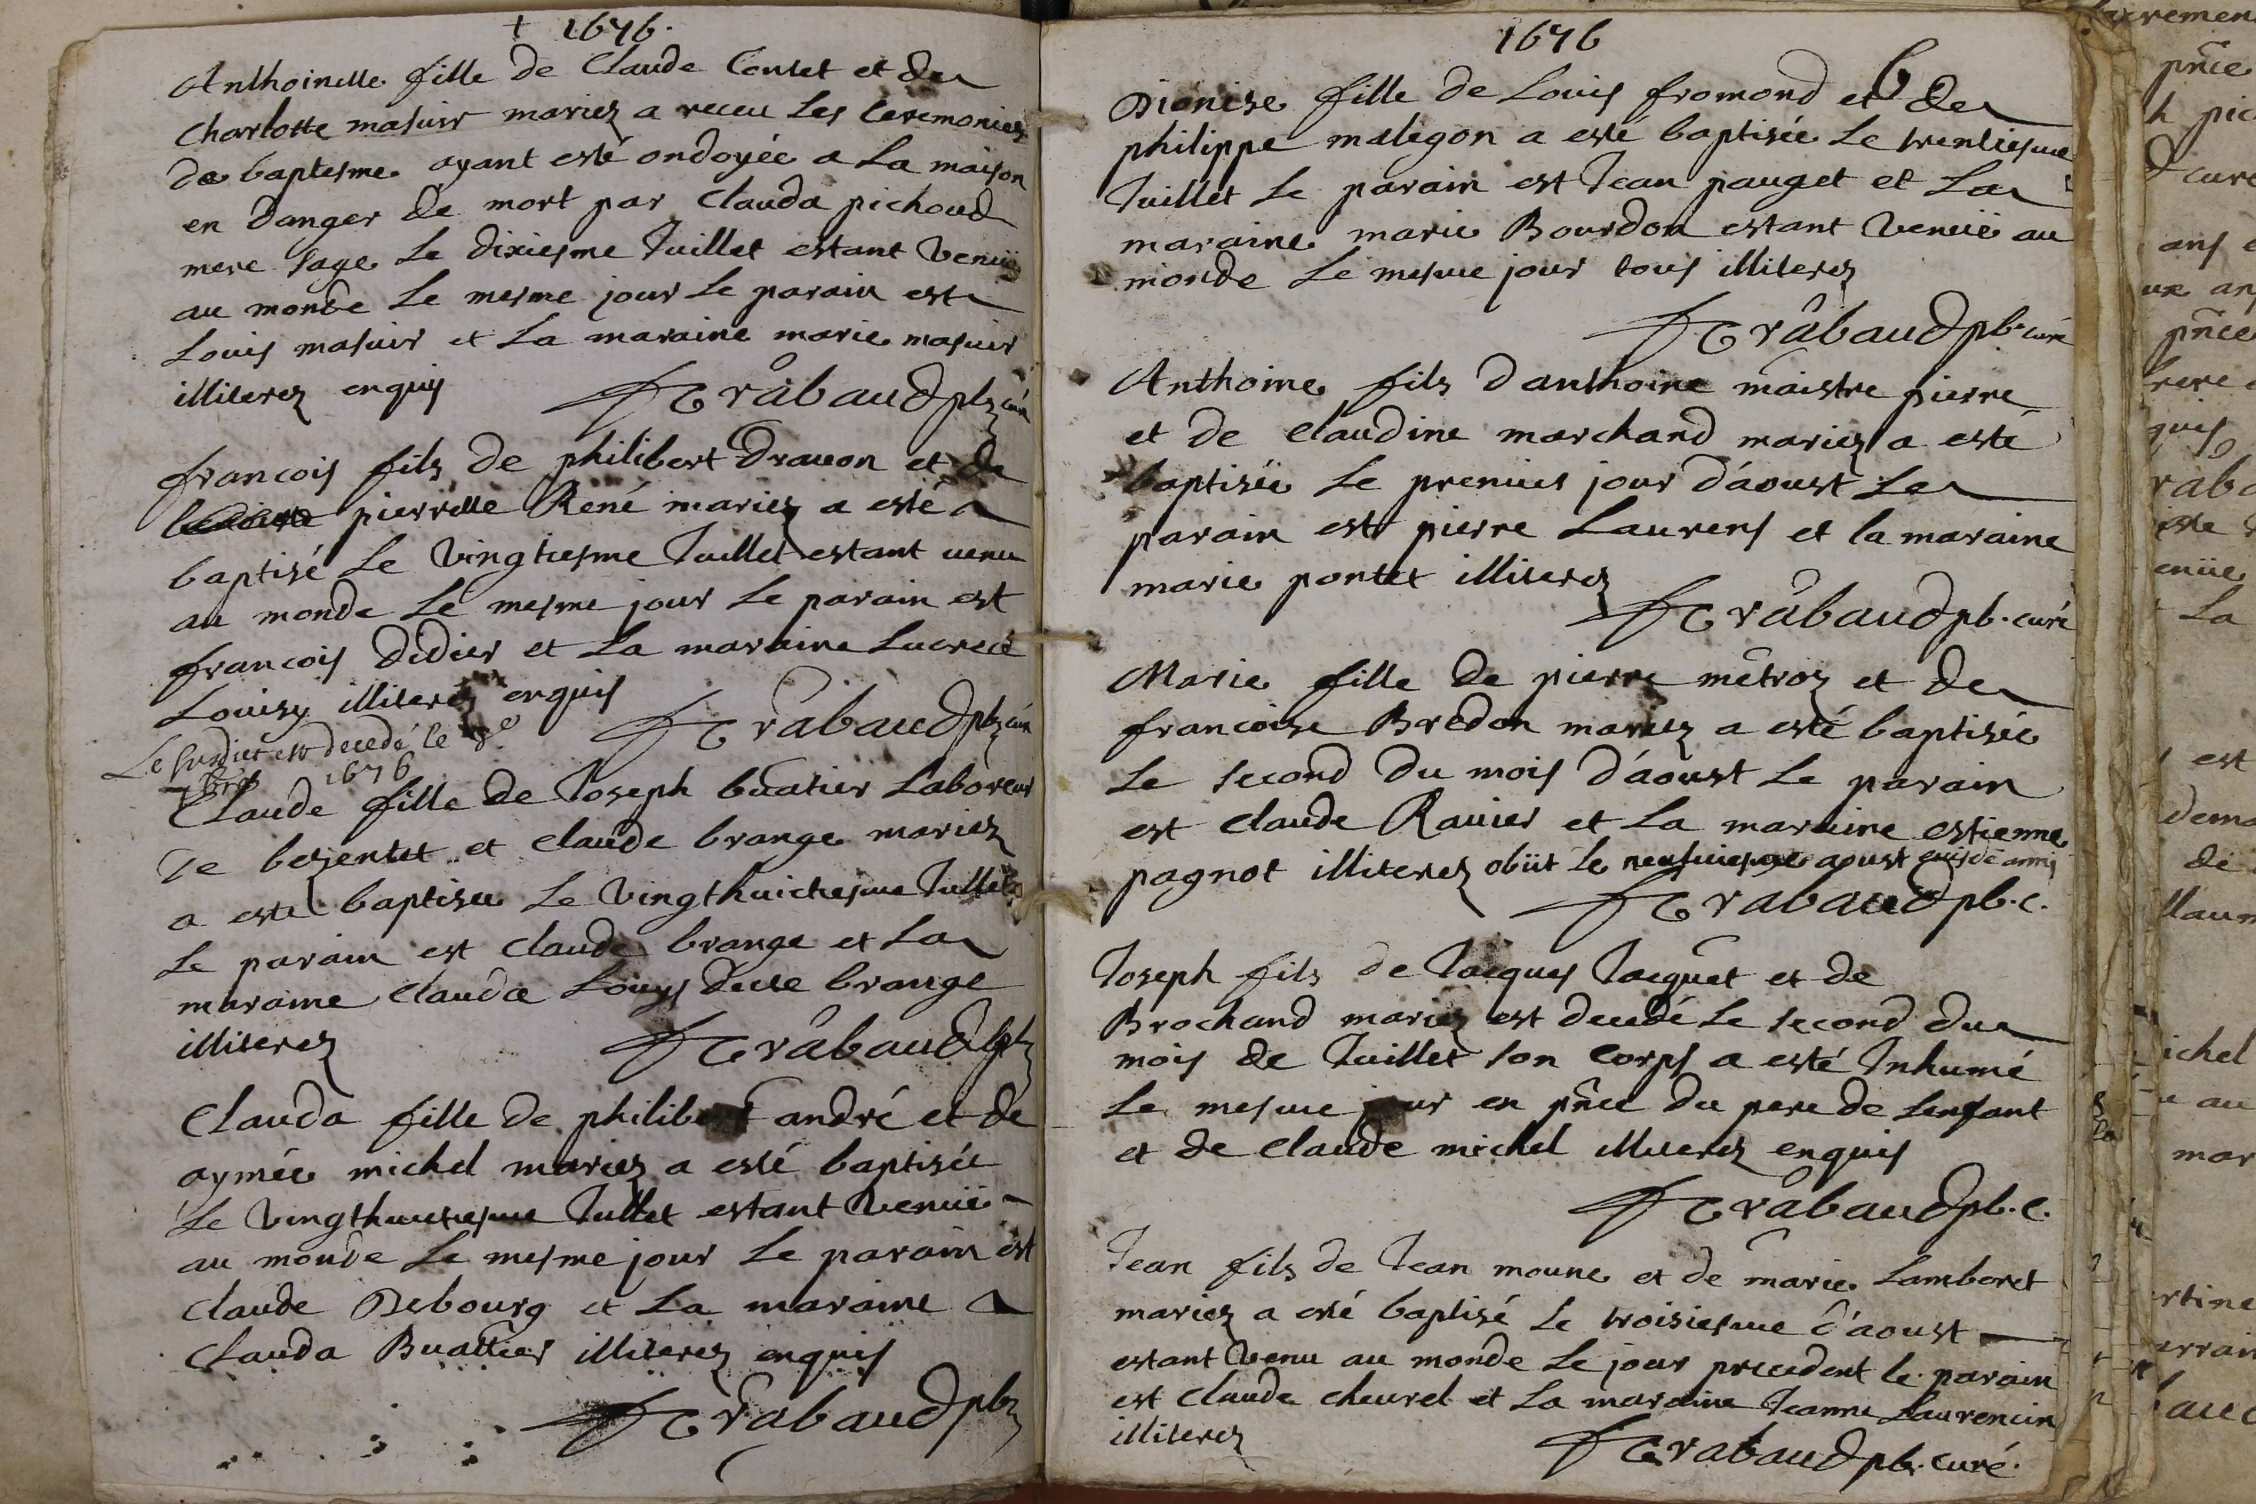 + 1676.
Anthoinette fille de Claude Contet et de
Charlotte masuir mariez a receu les ceremonies
de baptesme ayant esté ondoyée a la maison
en danger de mort par Clauda pichoud
mere sage le dixiesme Juillet estant venüe
au monde le mesme jour le parain est
Louis masuir et la maraine marie masuir
illiterez enquis Trabaud pbr curé
francois fils de philibert Drauon et de
pierrette René mariez a esté
baptisé le vingtiesme Juillet estant uenu
au monde le mesme jour le parain est
francois Didier et la maraine Lucrece
Louisy illiterez enquis
Trabaud pbr curé
Le susdict est decedé le 8e
7bre 1676
Claude fille de Joseph buatier Laboreur
de bezentet et claude brange mariez
a esté baptisee le vingthuictiesme Juillet
le parain est claude brange et la
maraine clauda Louys dicte brange
illiterez Trabaud pbr
Clauda fille de philibert andré et de
aymée michel mariez a esté baptisée
le vingthuictiesme Juillet estant venüe
au monde le mesme jour le parain est
claude Debourg et la maraine
Clauda Buattier illiterez enquis
Trabaud pbr
1676
6
Dionise fille de Louis fromond et de
philippe malegon a esté baptisée le trentiesme
Juillet le parain est Jean pauget et la
maraine marie Bourdon estant venüe au
monde le mesme jour tous illiterez
Trabaud pb. curé
Anthoine fils d'anthoine maistre pierre
et de claudine marchand mariez a esté
baptisée le premier jour d'aoust le
parain est pierre Laurens et la maraine
marie pontet illiterez
Trabaud pb. curé
Marie fille de pierre mêtroz et de
francoise Bredon mariez a esté baptisée
le second du mois d'aoust le parain
est claude Rauier et la maraine estienne
pagnot illiterez obiit le neufuiesme aoust eiusde anni
Trabaud pb. c.
Joseph fils de Jacques Jacquet et de
Brochand mariez est decedé le second du
mois de Juillet son corps a esté Inhumé
le mesme jour en pñce du pere de lenfant
et de claude michel illiterez enquis
Trabaud pb. c.
Jean fils de Jean moune et de marie Lamberet
mariez a esté baptisé le troisiesme d'aoust
estant venu au monde le jour precedent le parain
est claude cheurel et la maraine Jeanne Laurencin
illiterez Trabaud pb. curé.